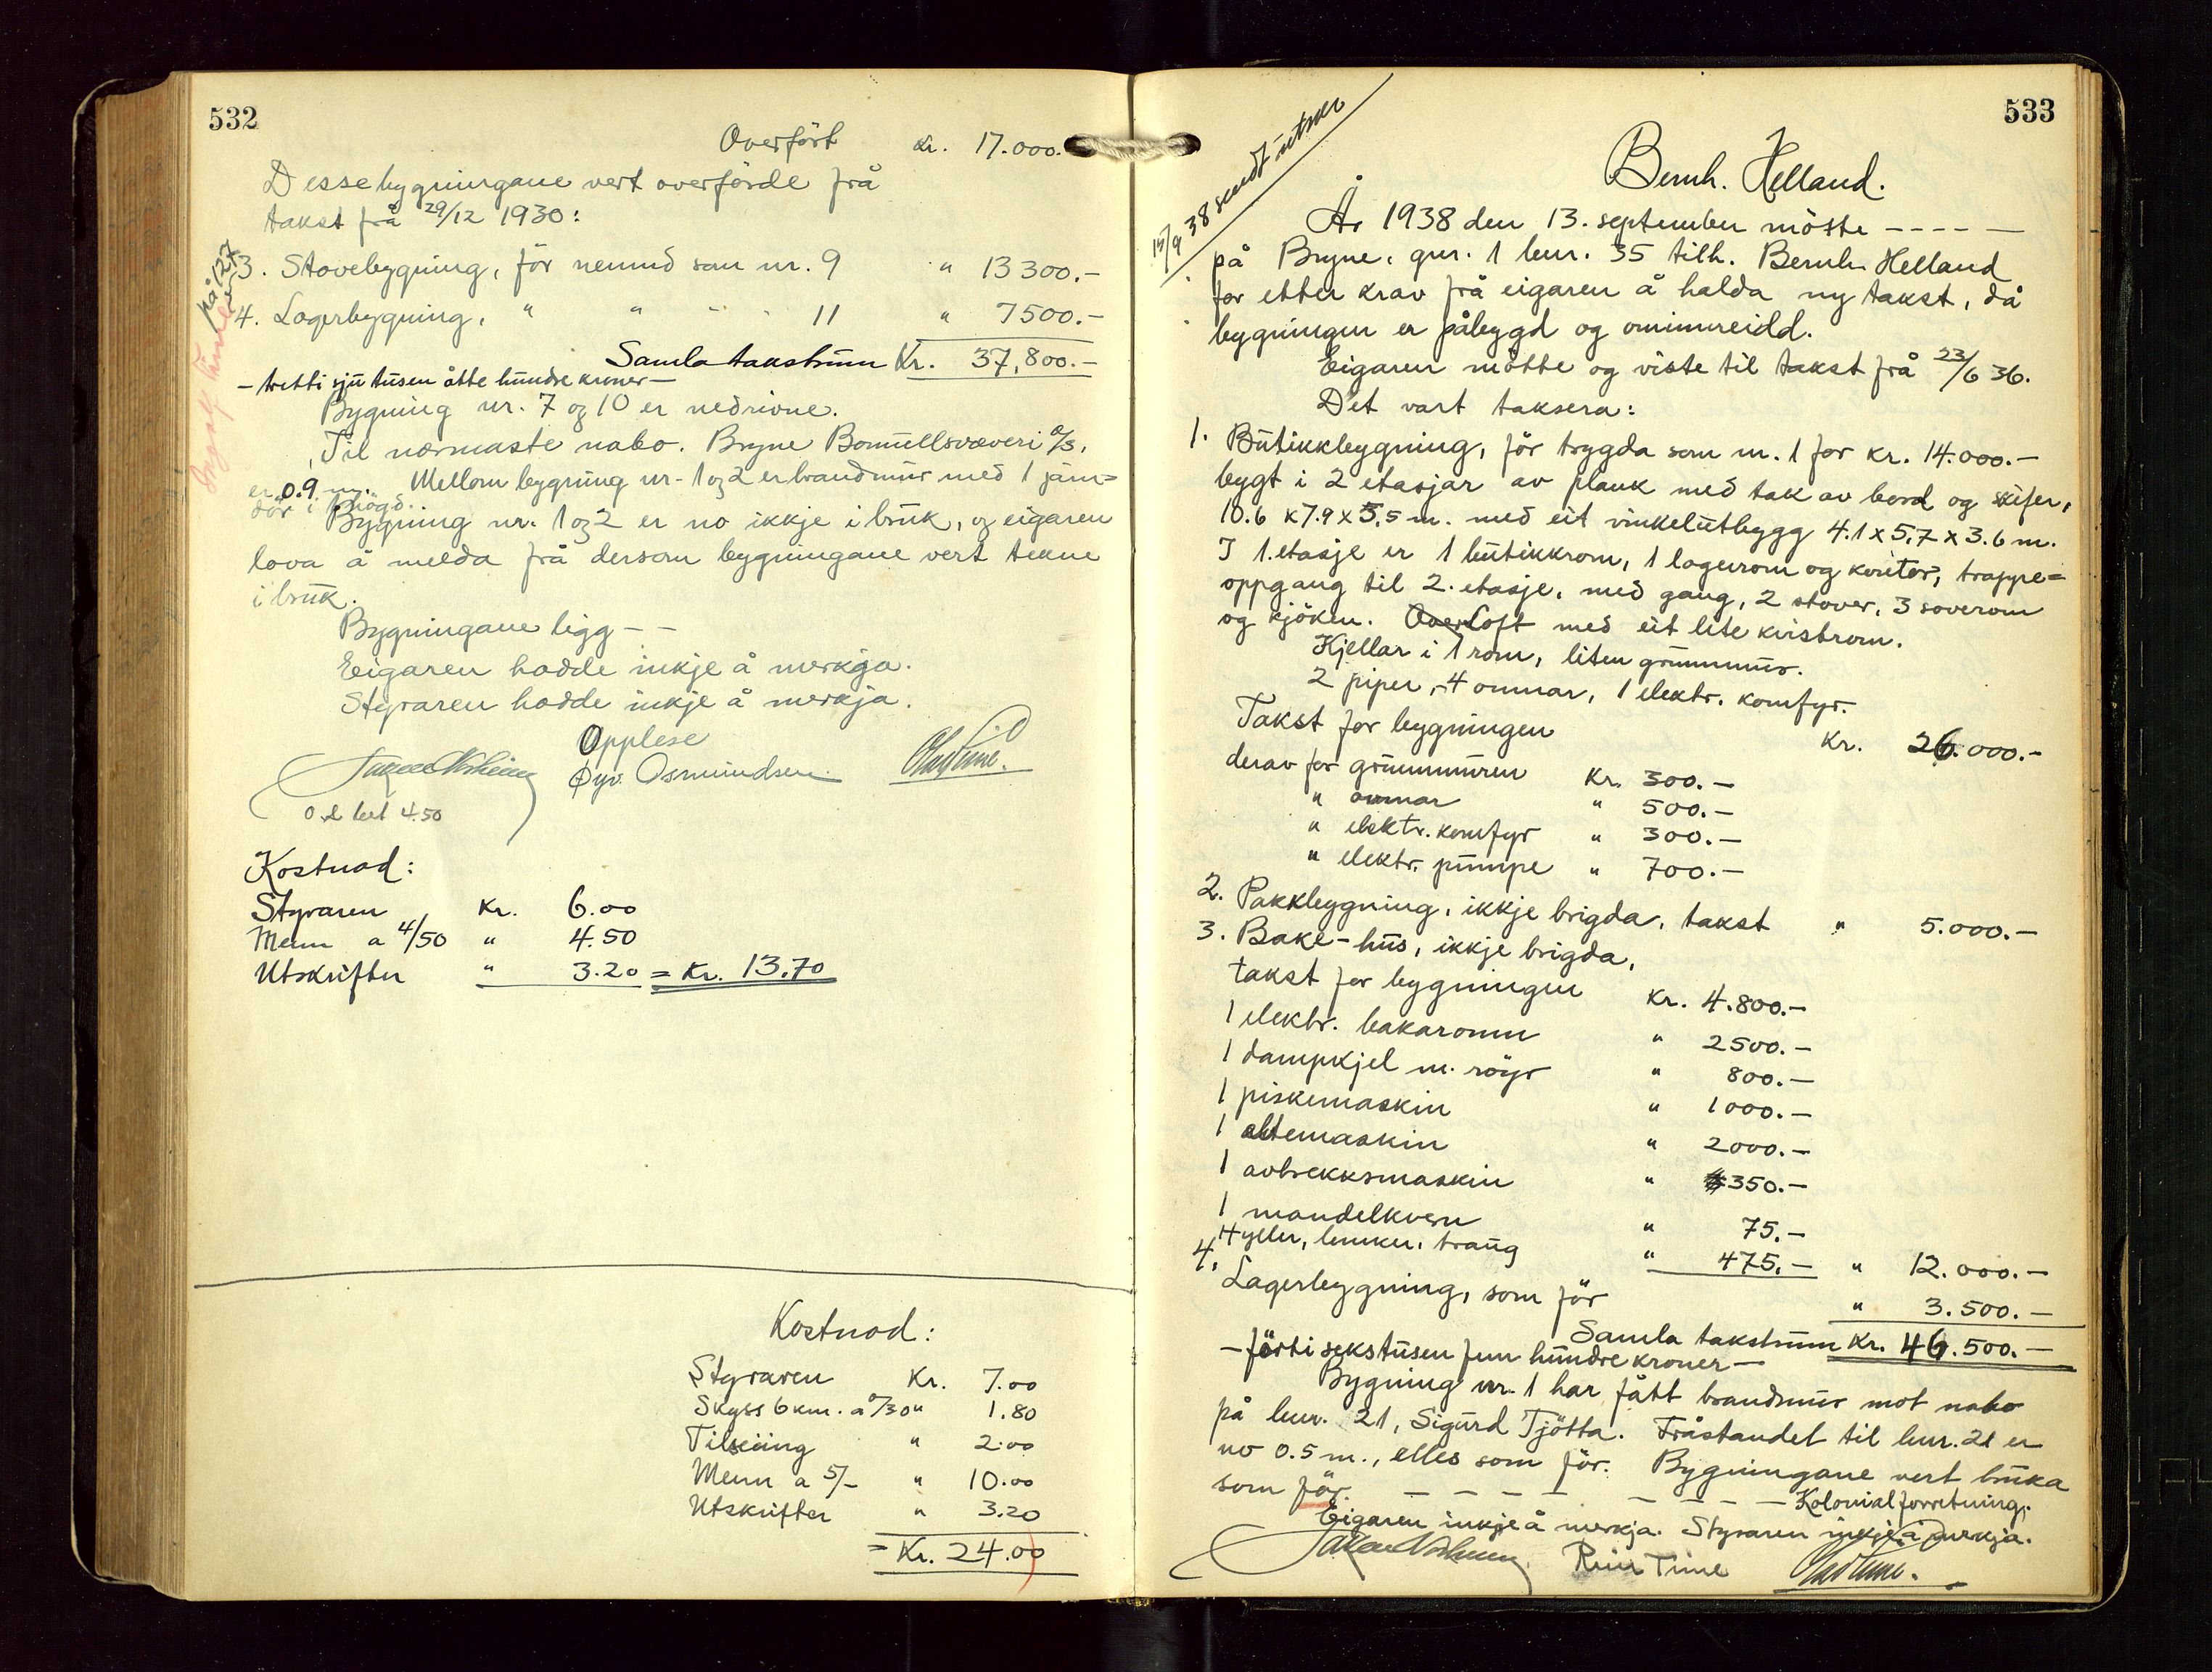 532
Overfört Kr. 17.000.
Desse bygningane vert overförde frå
takst frå 29/12 1930:
3. Stovebygning, för nemnd som nr. 9 " 13300.-
4. Lagerbygning, " " " 11 " 7500.-
Samla takstsum Kr. 37,800.-
- tretti sju tusen åtte hundre kroner -
Bygning nr. 7 og 10 er nedrivne.
Til nærmaste nabo. Bryne Bomullsvæveri A/S,
er 0.9 m. Mellom bygning nr. 1 og 2 er brandmur med 1 jarn=
dör i 1 högd.
Bygning nr. 1 og 2 er no ikkje i bruk, og eigaren
lova å melda frå dersom bygningane vert tekne
i bruk.
Bygningane ligg - -
Eigaren hadde inkje å merkja.
Styraren hadde inkje å merkja.
Opplese
Øyv. Osmundsen
Olav Time.
4.50
Kostnad:
Styraren Kr. 6.00
Menn a 4/50 " 4.50
Utskrifter " 3.20 = Kr. 13.70
Kostnad:
Styraren Kr. 7.00
Skyss 6 km. a 0/30 " 1.80
Tilsiing " 2.00
Menn a 5/- " 10.00
Utskrifter " 3.20
= Kr. 24.00
533
15/9 38 sendt utskr
Bernh. Helland.
År 1938 den 13. september mötte - - - - -
på Bryne, gnr. 1 bnr. 35 tilh. Bernh. Helland
for etter krav frå eigaren å halda ny takst, då
bygningen er påbygd og ominnreidd.
Eigaren mötte og viste til takst frå 23/6 36.
Det vart taksera:
1. Butikkbygning, för trygda som nr. 1 for kr. 14.000.-
bygt i 2 etasjar av plank med tak av bord og skifer,
10.6 x 7.9 x 5.5 m. med eit vinkelutbygg 4.1 x 5.7 x 3.6 m.
I 1. etasje er 1 butikkrom, 1 lagerrom og kontor, trappe=
oppgang til 2. etasje, med gang, 2 stover, 3 soverom
og kjöken. Over Loft med eit lite kvistrom.
Kjellar i 1 rom, liten grunnmur.
2 piper, 4 omnar, 1 elektr. komfyr.
Takst for bygningen Kr. 26.000.-
derav for grunnmuren Kr. 300.-
" omnar " 500.-
" elektr. komfyr " 300.-
" elektr. pumpe " 700.-
2. Pakkbygning, ikkje brigda, takst " 5.000.-
3. Bake-hus, ikkje brigda,
takst for bygningen Kr. 4.800.-
1 elektr. bakaromn " 2500.-
1 dampkjel m. röyr " 800.-
1 piskemaskin " 1000.-
1 eltemaskin " 2000.-
1 avtrekksmaskin " 350.-
1 mandelkvern " 75.-
Hyller, benker, traug " 475.- " 12.000.-
4. Lagerbygning, som för " 3.500.-
Samla takstsum Kr. 46.500.-
- förti seks tusen fem hundre kroner -
Bygning nr. 1 har fått brandmur mot nabo
på bnr. 21, Sigurd Tjötta. Fråstandet til bnr. 21 er
no 0.5 m., elles som för. Bygningane vert bruka
som för. - - - - - - - - Kolonialforretning.
Eigaren inkje å merkja. Styraren inkje å merkja.
Rein Time
Olav Time.